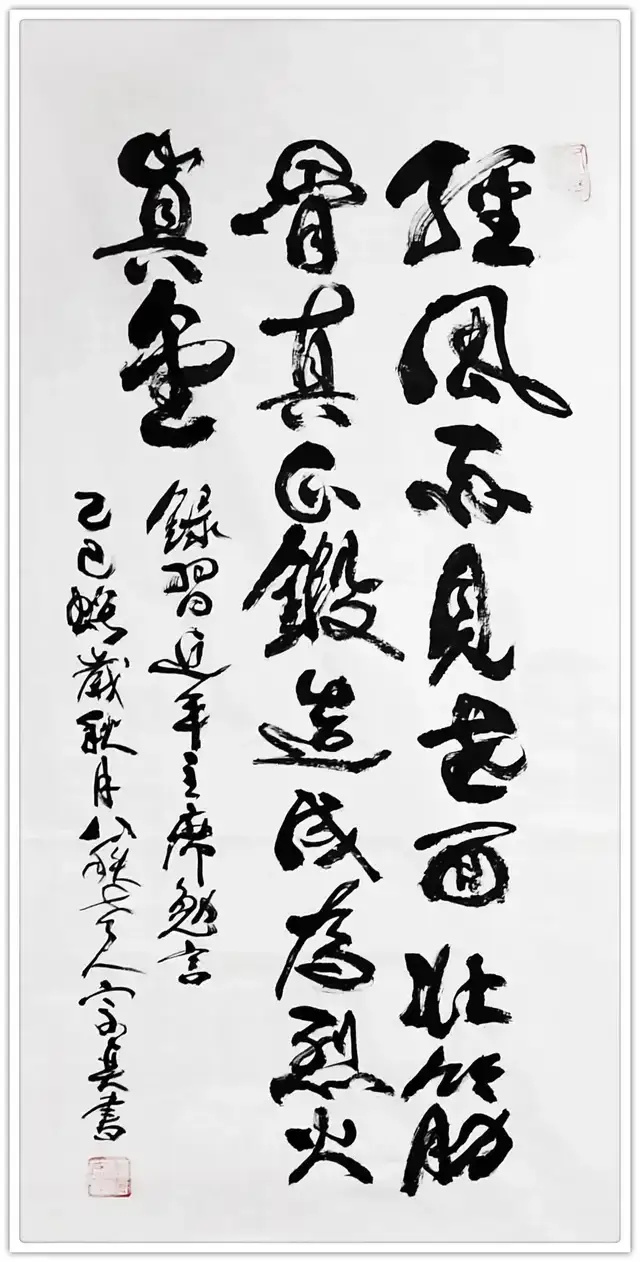 經風雨見世面壯筋
骨真正鍛造成為烈火
真金
錄習近平主席勉言
乙巳蛇歲秋月八 人宗 書